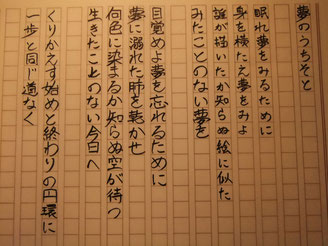 夢のうちそと
眠れ夢をみるために
身を横たえ夢をみよ
誰が描いたか知らぬ絵に似た
みたことのない夢を
目覚めよ夢を忘れるために
夢に溺れた肺を乾かせ
何色に染まるか知らぬ空が待つ
生きたことのない今日へ
くりかえす始めと終わりの円環に
一歩と同じ道なく